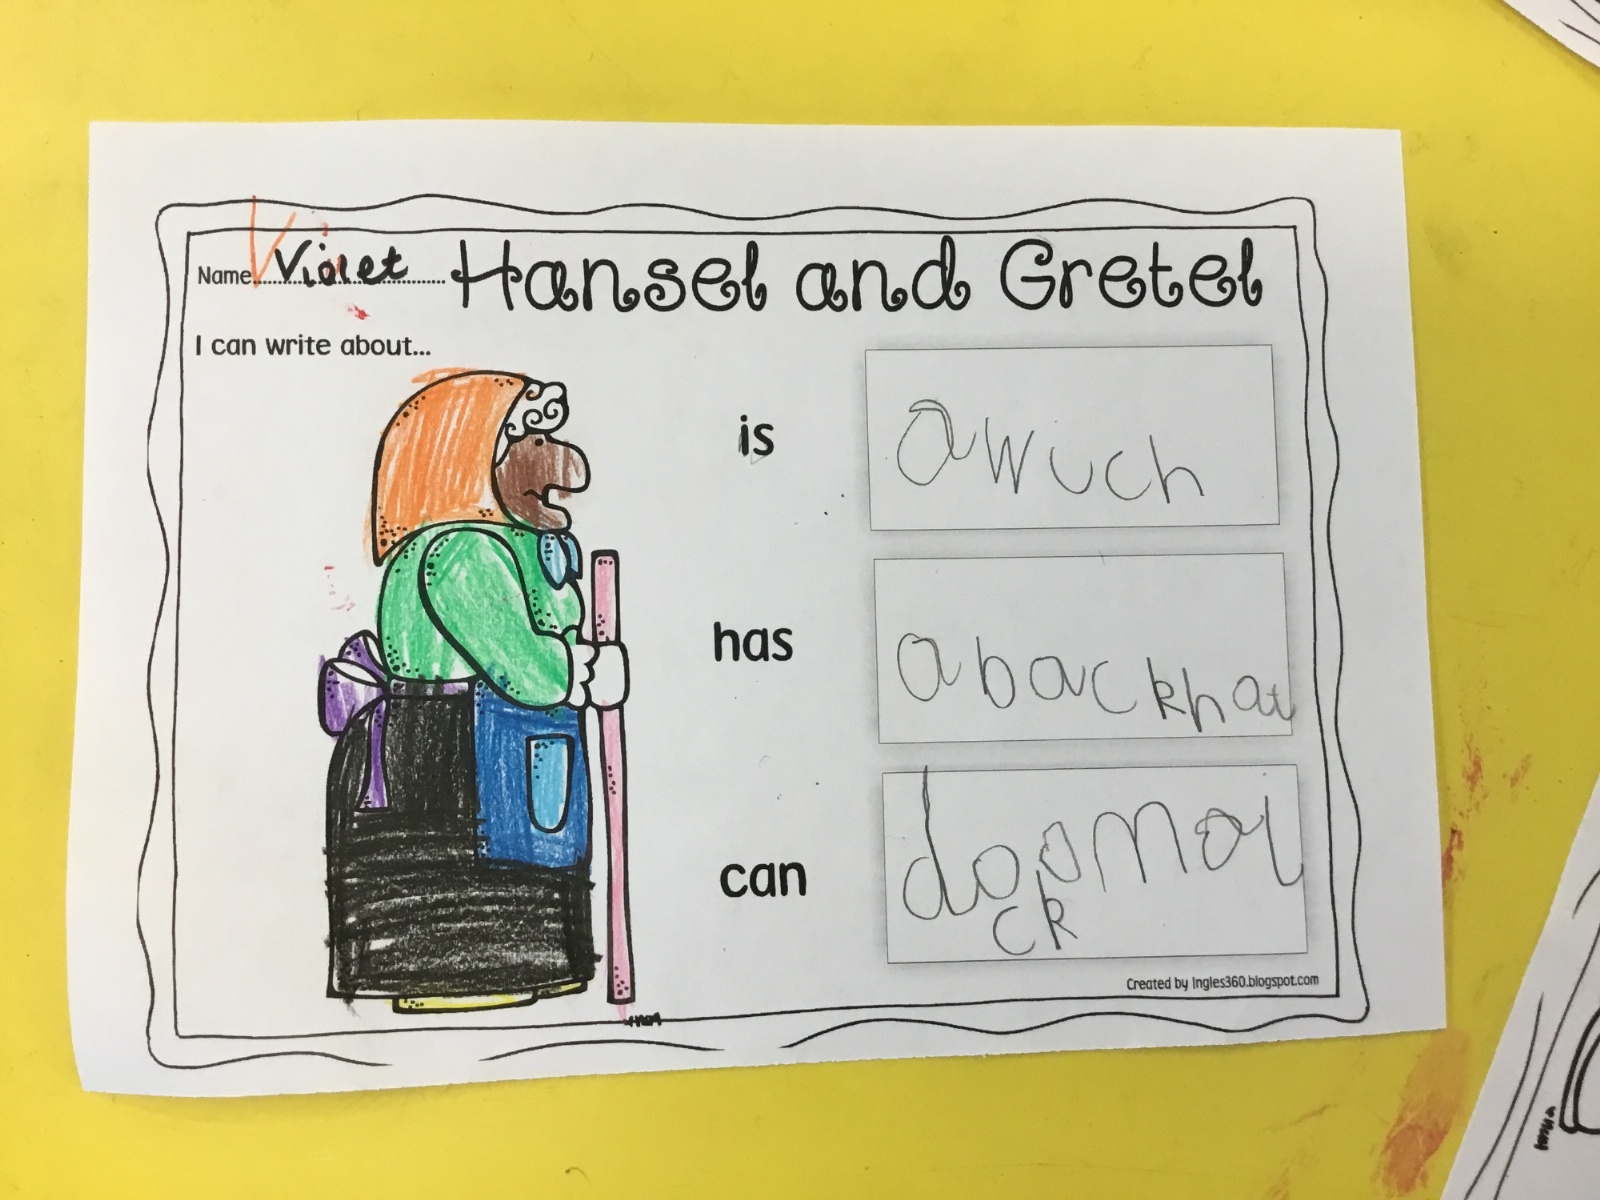 Name Violet Hansel and Gretel
I can write about...
is a wich
has a back hat
can do mai
ck
Created by Ingles360.blogspot.com